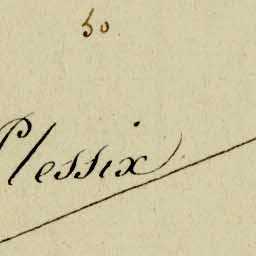 50
Plessix